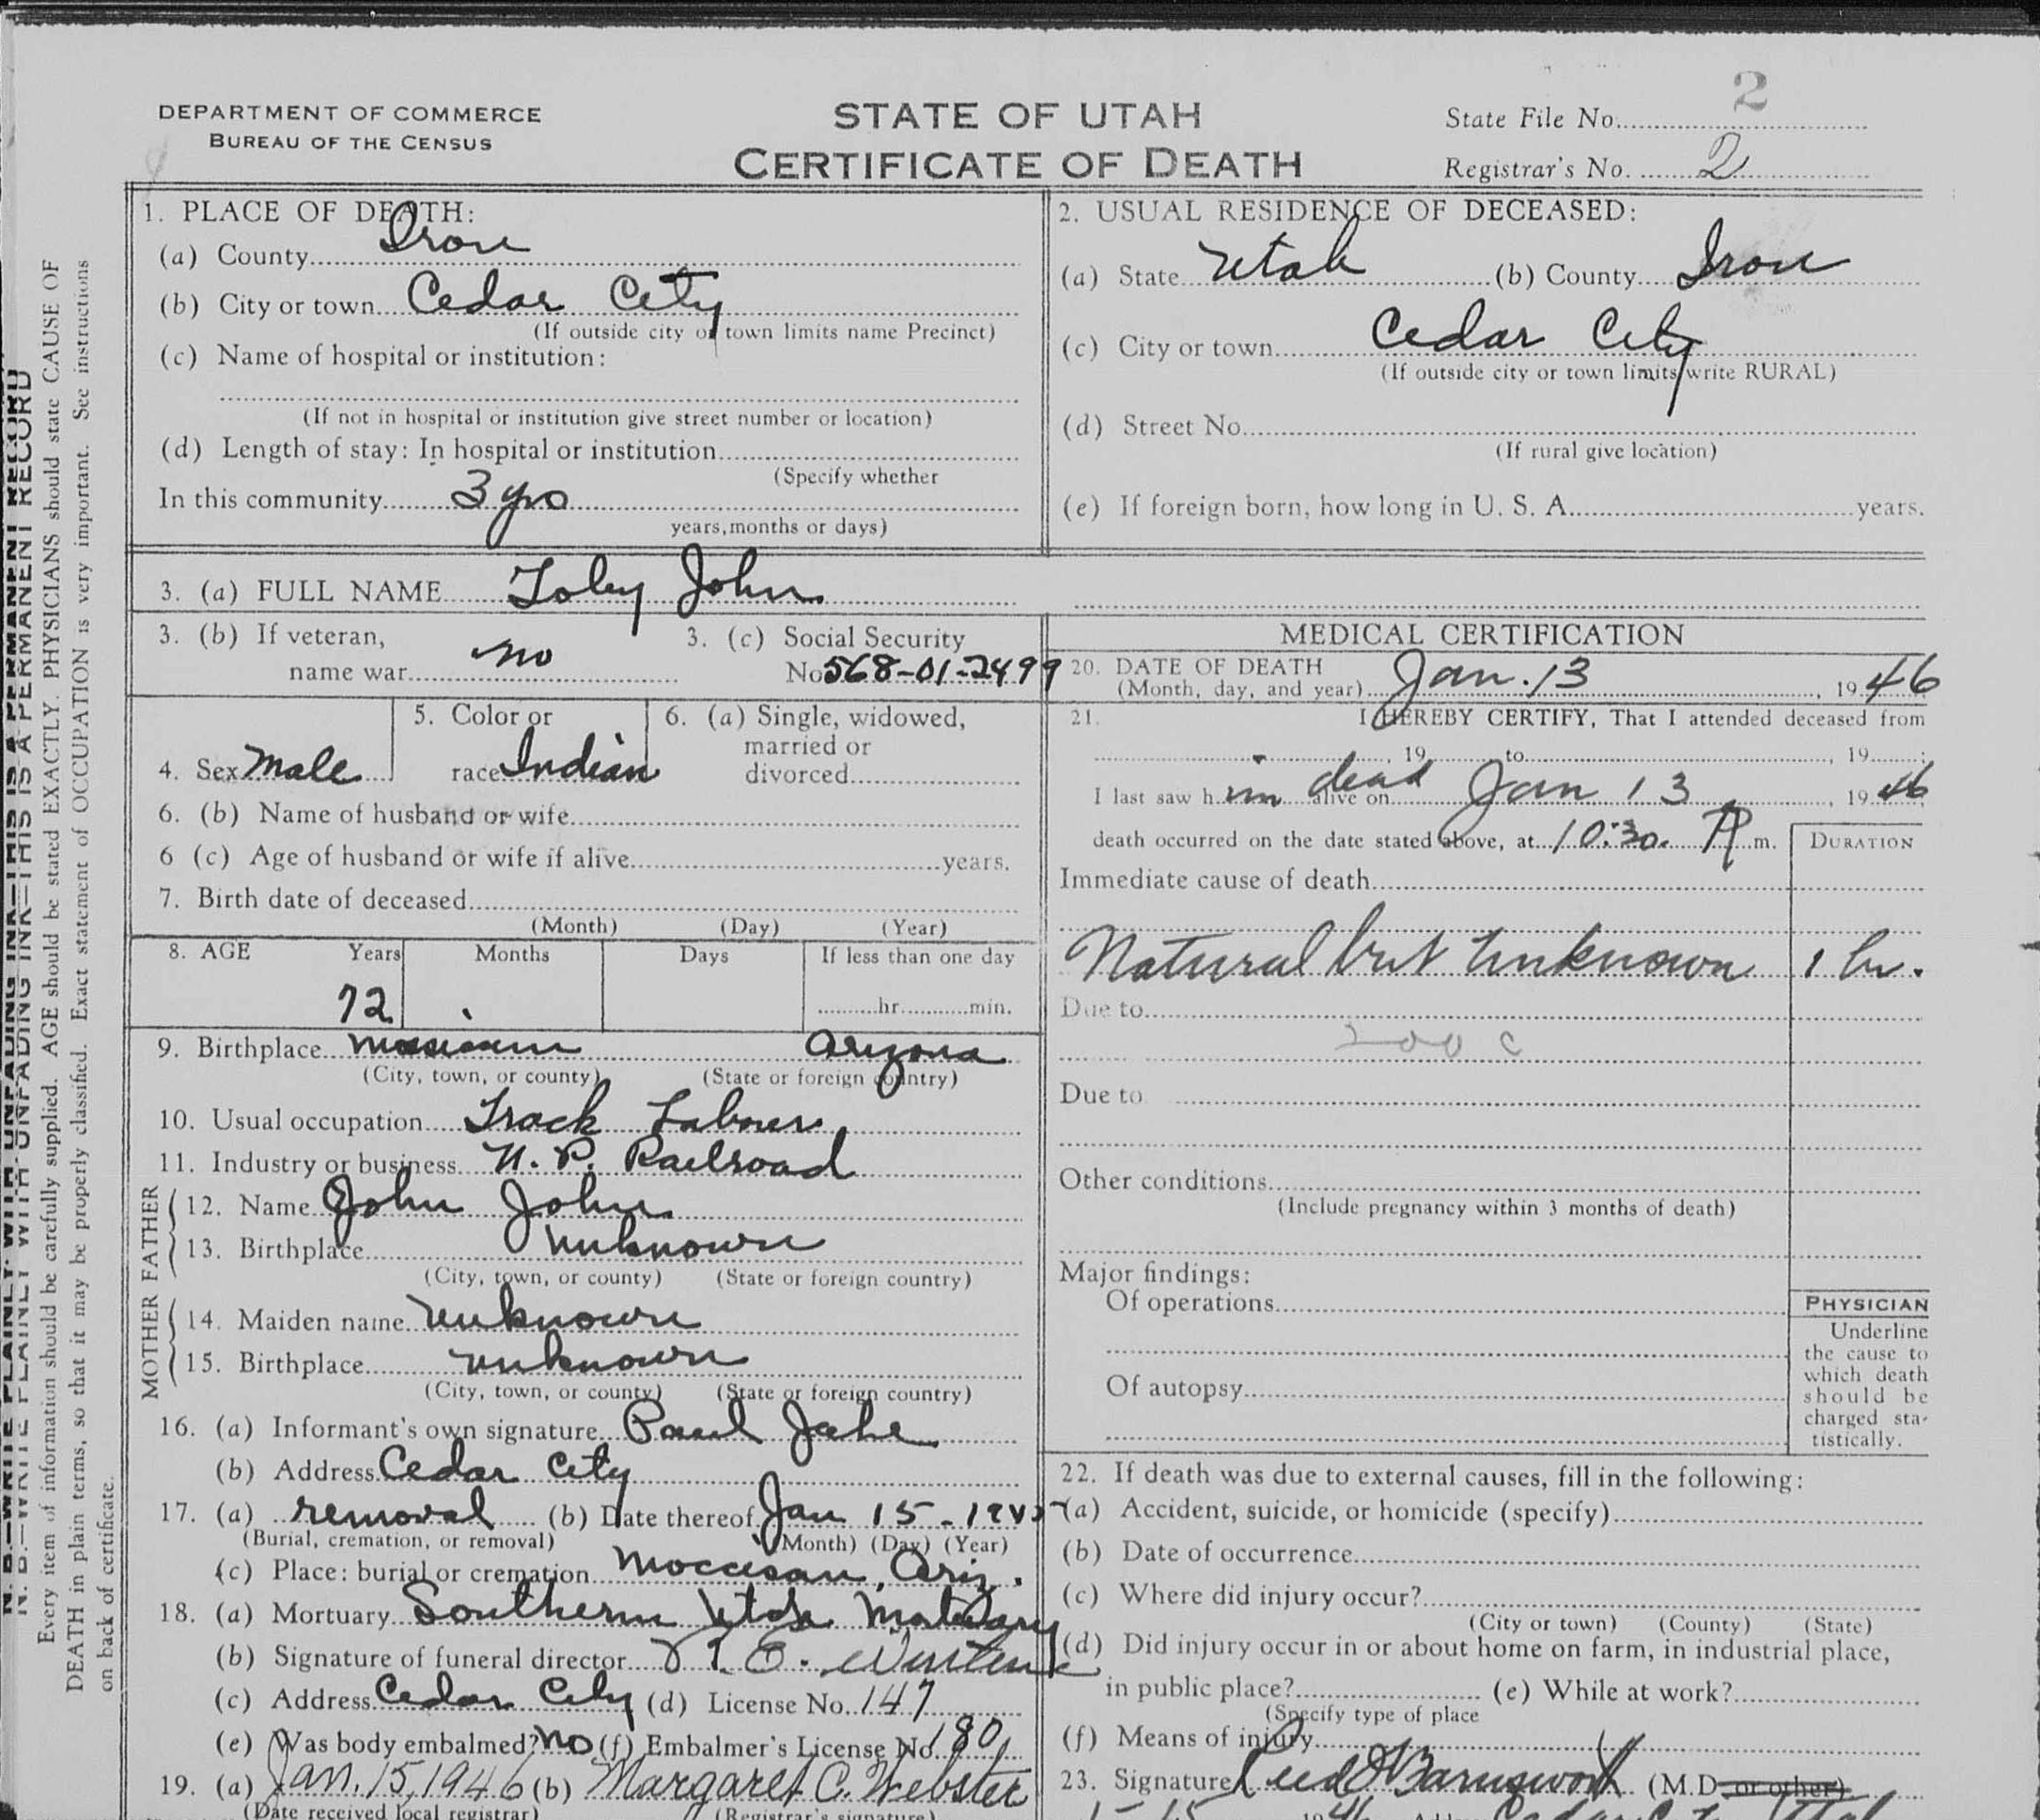 DEPARTMENT OF COMMERCE
BUREAU OF THE CENSUS
STATE OF UTAH
CERTIFICATE OF DEATH
2
State File No.
Registrar's No. 2
N. B.—WRITE PLAINLY WITH UNFADING INK—THIS IS A PERMANENT RECORD
Every item of information should be carefully supplied. AGE should be stated EXACTLY. PHYSICIANS should state CAUSE OF
DEATH in plain terms, so that it may be properly classified. Exact statement of OCCUPATION is very important. See instructions
on back of certificate.
1. PLACE OF DEATH:
(a) County Iron
(b) City or town Cedar City
(If outside city or town limits name Precinct)
(c) Name of hospital or institution:
(If not in hospital or institution give street number or location)
(d) Length of stay: In hospital or institution
(Specify whether
In this community 3 yrs
years, months or days)
2. USUAL RESIDENCE OF DECEASED:
(a) State Utah (b) County Iron
(c) City or town Cedar City
(If outside city or town limits write RURAL)
(d) Street No.
(If rural give location)
(e) If foreign born, how long in U. S. A. years.
3. (a) FULL NAME Toby John
3. (b) If veteran,
name war no
3. (c) Social Security
No 568-01-2499
4. Sex male
5. Color or
race Indian
6. (a) Single, widowed,
married or
divorced
6. (b) Name of husband or wife
6 (c) Age of husband or wife if alive years.
7. Birth date of deceased
(Month) (Day) (Year)
8. AGE Years Months Days If less than one day
72 hr. min.
9. Birthplace Arizona
(City, town, or county) (State or foreign country)
10. Usual occupation Track Laborer
11. Industry or business U. P. Railroad
FATHER
12. Name John John
13. Birthplace Unknown
(City, town, or county) (State or foreign country)
MOTHER
14. Maiden name unknown
15. Birthplace unknown
(City, town, or county) (State or foreign country)
16. (a) Informant's own signature Paul Jake
(b) Address Cedar City
17. (a) removal (b) Date thereof Jan 15 - 194
(Burial, cremation, or removal) (Month) (Day) (Year)
(c) Place: burial or cremation Moccasan, Ariz.
18. (a) Mortuary Southern Utah Mortuary
(b) Signature of funeral director
(c) Address Cedar City (d) License No. 147
(e) Was body embalmed? no (f) Embalmer's License No. 180
19. (a) Jan. 15, 1946 (b) Margaret C. Webster
(Date received local registrar) (Registrar's signature)
MEDICAL CERTIFICATION
20. DATE OF DEATH
(Month, day, and year) Jan. 13, 1946
21. I HEREBY CERTIFY, That I attended deceased from
, 19 to , 19 ;
I last saw h im dead alive on Jan 13, 19 46
death occurred on the date stated above, at 10:30 P m.
DURATION
Immediate cause of death
Natural but Unknown 1 hr.
Due to
200 c
Due to
Other conditions
(Include pregnancy within 3 months of death)
Major findings:
Of operations
Of autopsy
PHYSICIAN
Underline
the cause to
which death
should be
charged sta-
tistically.
22. If death was due to external causes, fill in the following:
(a) Accident, suicide, or homicide (specify)
(b) Date of occurrence
(c) Where did injury occur?
(City or town) (County) (State)
(d) Did injury occur in or about home on farm, in industrial place,
in public place? (e) While at work?
(Specify type of place
(f) Means of injury
23. Signature (M.D. or other)